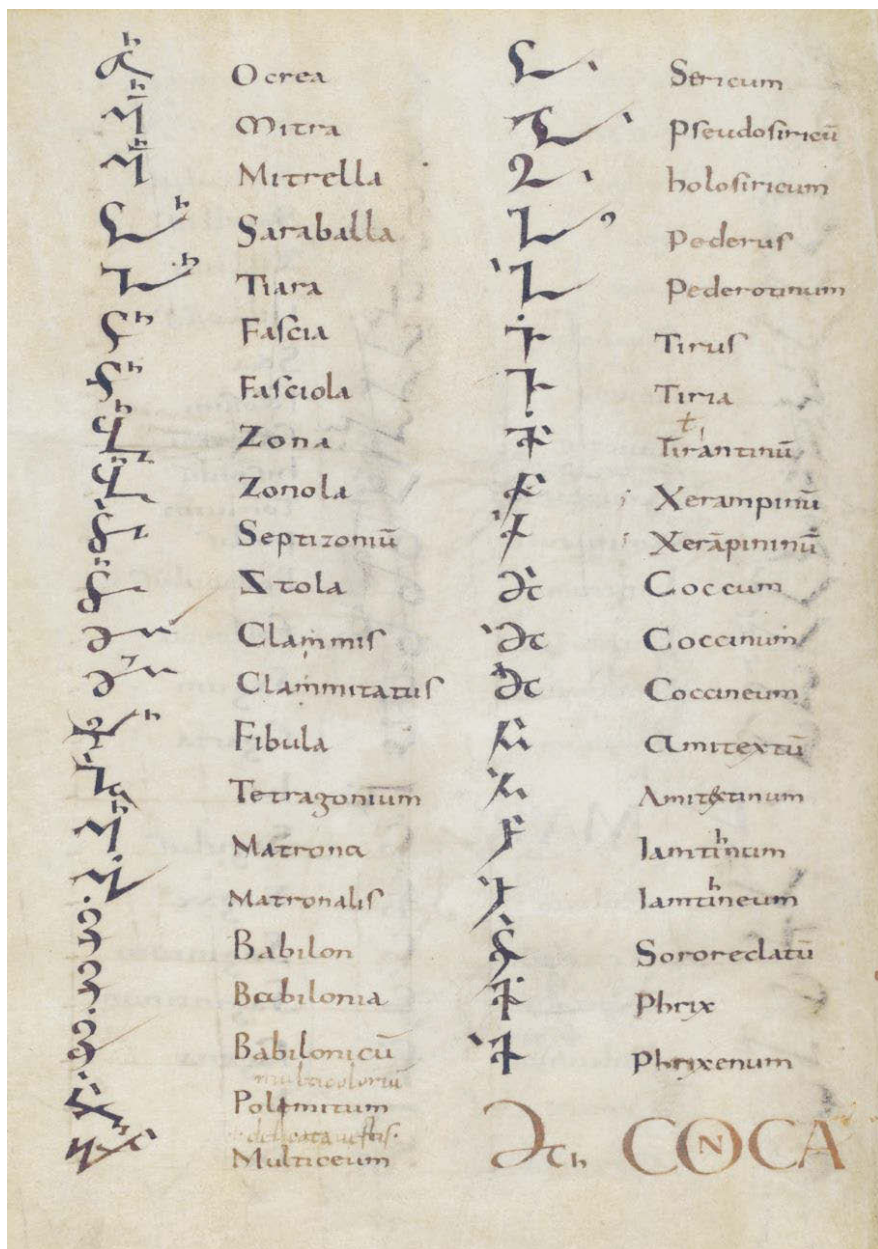 Ocrea
Mitra
Mitrella
Saraballa
Tiara
Faſcia
Faſciola
Zona
Zonola
Septizoniū
Stola
Clammiſ
Clammitatuſ
Fibula
Tetragonium
Matrona
Matronaliſ
Babilon
Babilonia
Babilonicū
multicoloriū
Polimitum
delicata veſtis.
Multiceum
Sericum
Pſeudoſiricū
holoſiricum
Pederuſ
Pederotinum
Tiruſ
Tiria
t
Tirantinū
Xerampinū
Xerāpininū
Coccum
Coccinum
Coccineum
Amitextū
Amitextinum
h
Iamtintum
h
Iamtineum
Sororeclatū
Phrix
Phrixenum
CONCA